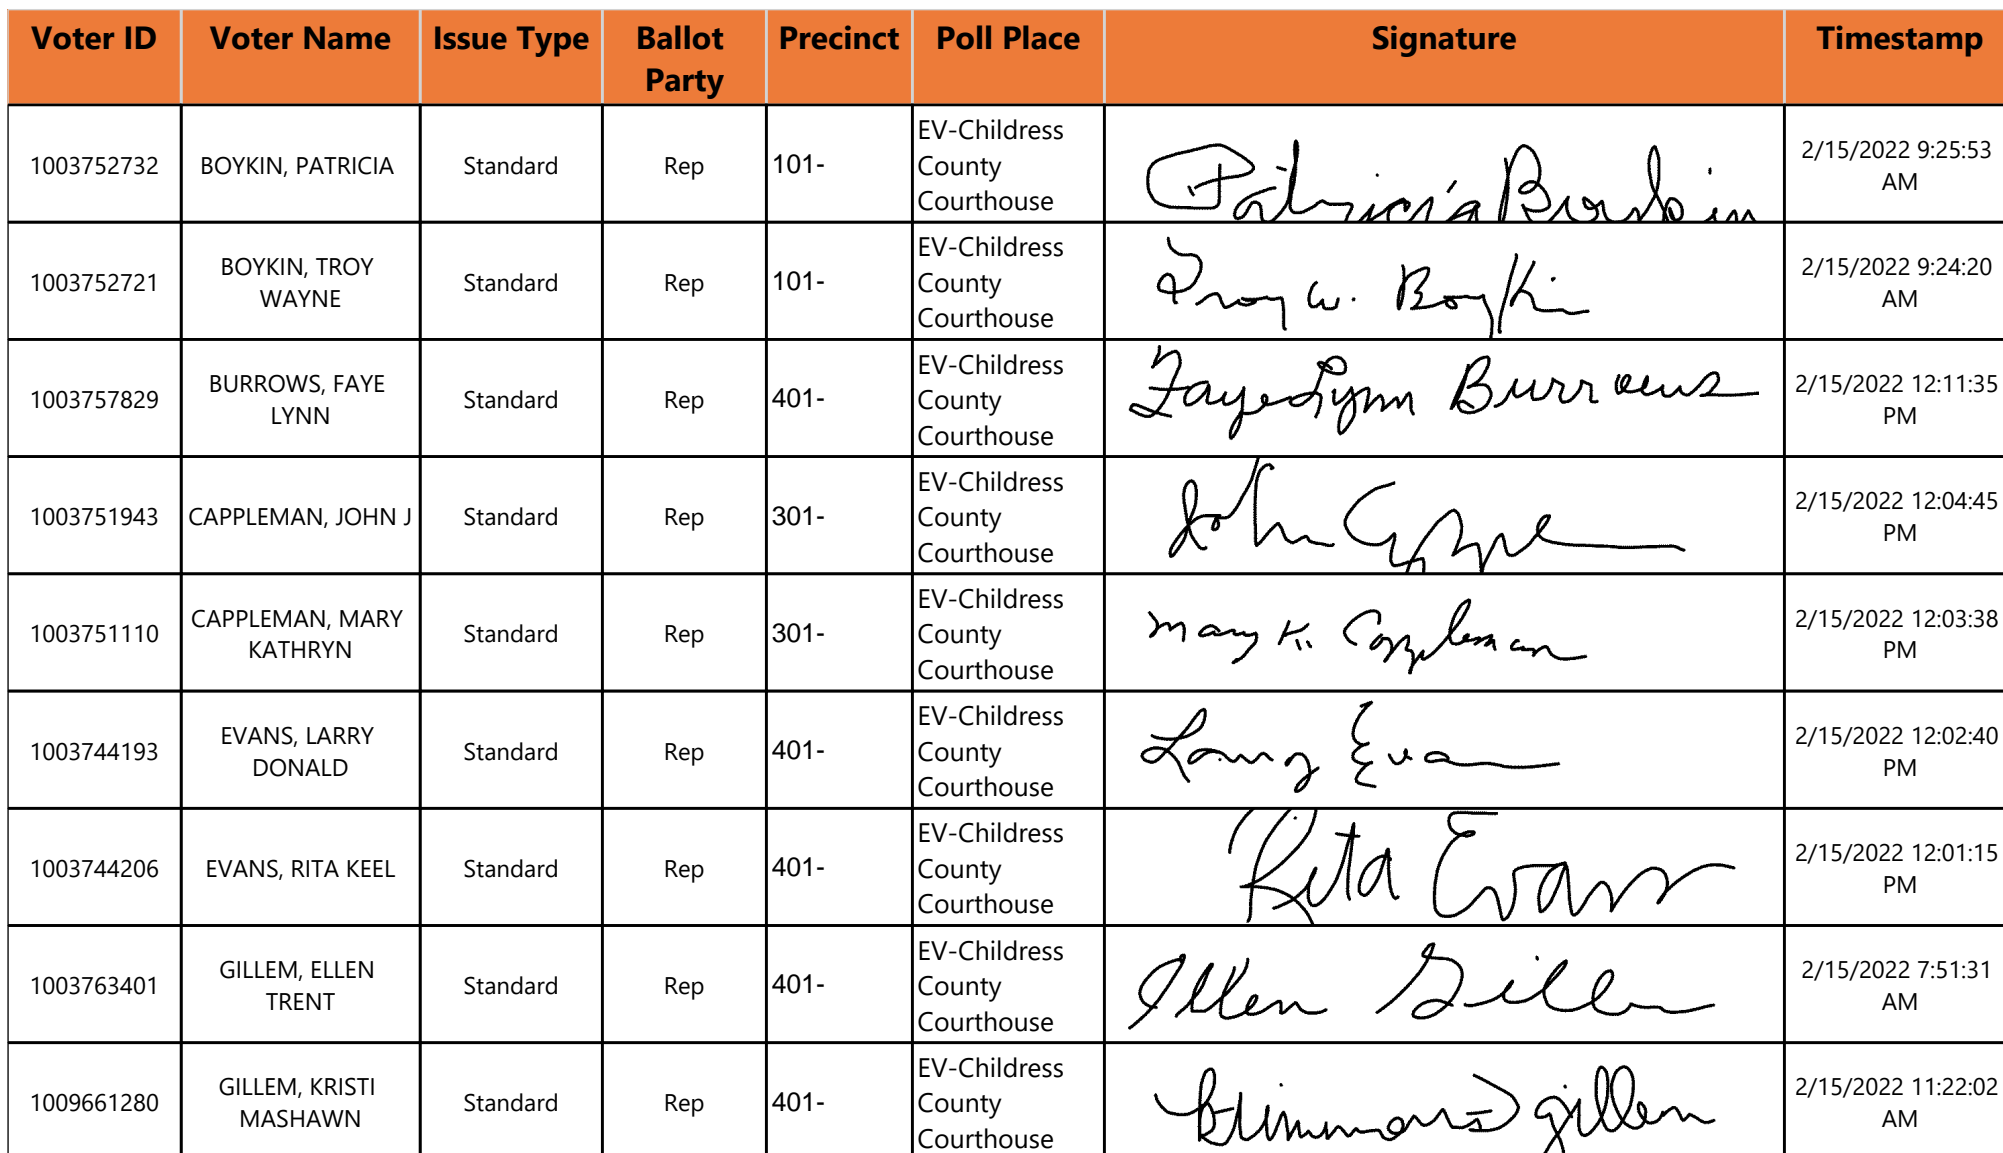 Voter ID Voter Name Issue Type Ballot Party Precinct Poll Place Signature Timestamp
1003752732 BOYKIN, PATRICIA Standard Rep 101- EV-Childress County Courthouse Patricia Boykin 2/15/2022 9:25:53 AM
1003752721 BOYKIN, TROY WAYNE Standard Rep 101- EV-Childress County Courthouse Troy W. Boykin 2/15/2022 9:24:20 AM
1003757829 BURROWS, FAYE LYNN Standard Rep 401- EV-Childress County Courthouse Faye Lynn Burrows 2/15/2022 12:11:35 PM
1003751943 CAPPLEMAN, JOHN J Standard Rep 301- EV-Childress County Courthouse John 2/15/2022 12:04:45 PM
1003751110 CAPPLEMAN, MARY KATHRYN Standard Rep 301- EV-Childress County Courthouse Mary K. Cappleman 2/15/2022 12:03:38 PM
1003744193 EVANS, LARRY DONALD Standard Rep 401- EV-Childress County Courthouse Larry Evan 2/15/2022 12:02:40 PM
1003744206 EVANS, RITA KEEL Standard Rep 401- EV-Childress County Courthouse Rita Evans 2/15/2022 12:01:15 PM
1003763401 GILLEM, ELLEN TRENT Standard Rep 401- EV-Childress County Courthouse Ellen Gillem 2/15/2022 7:51:31 AM
1009661280 GILLEM, KRISTI MASHAWN Standard Rep 401- EV-Childress County Courthouse gillem 2/15/2022 11:22:02 AM